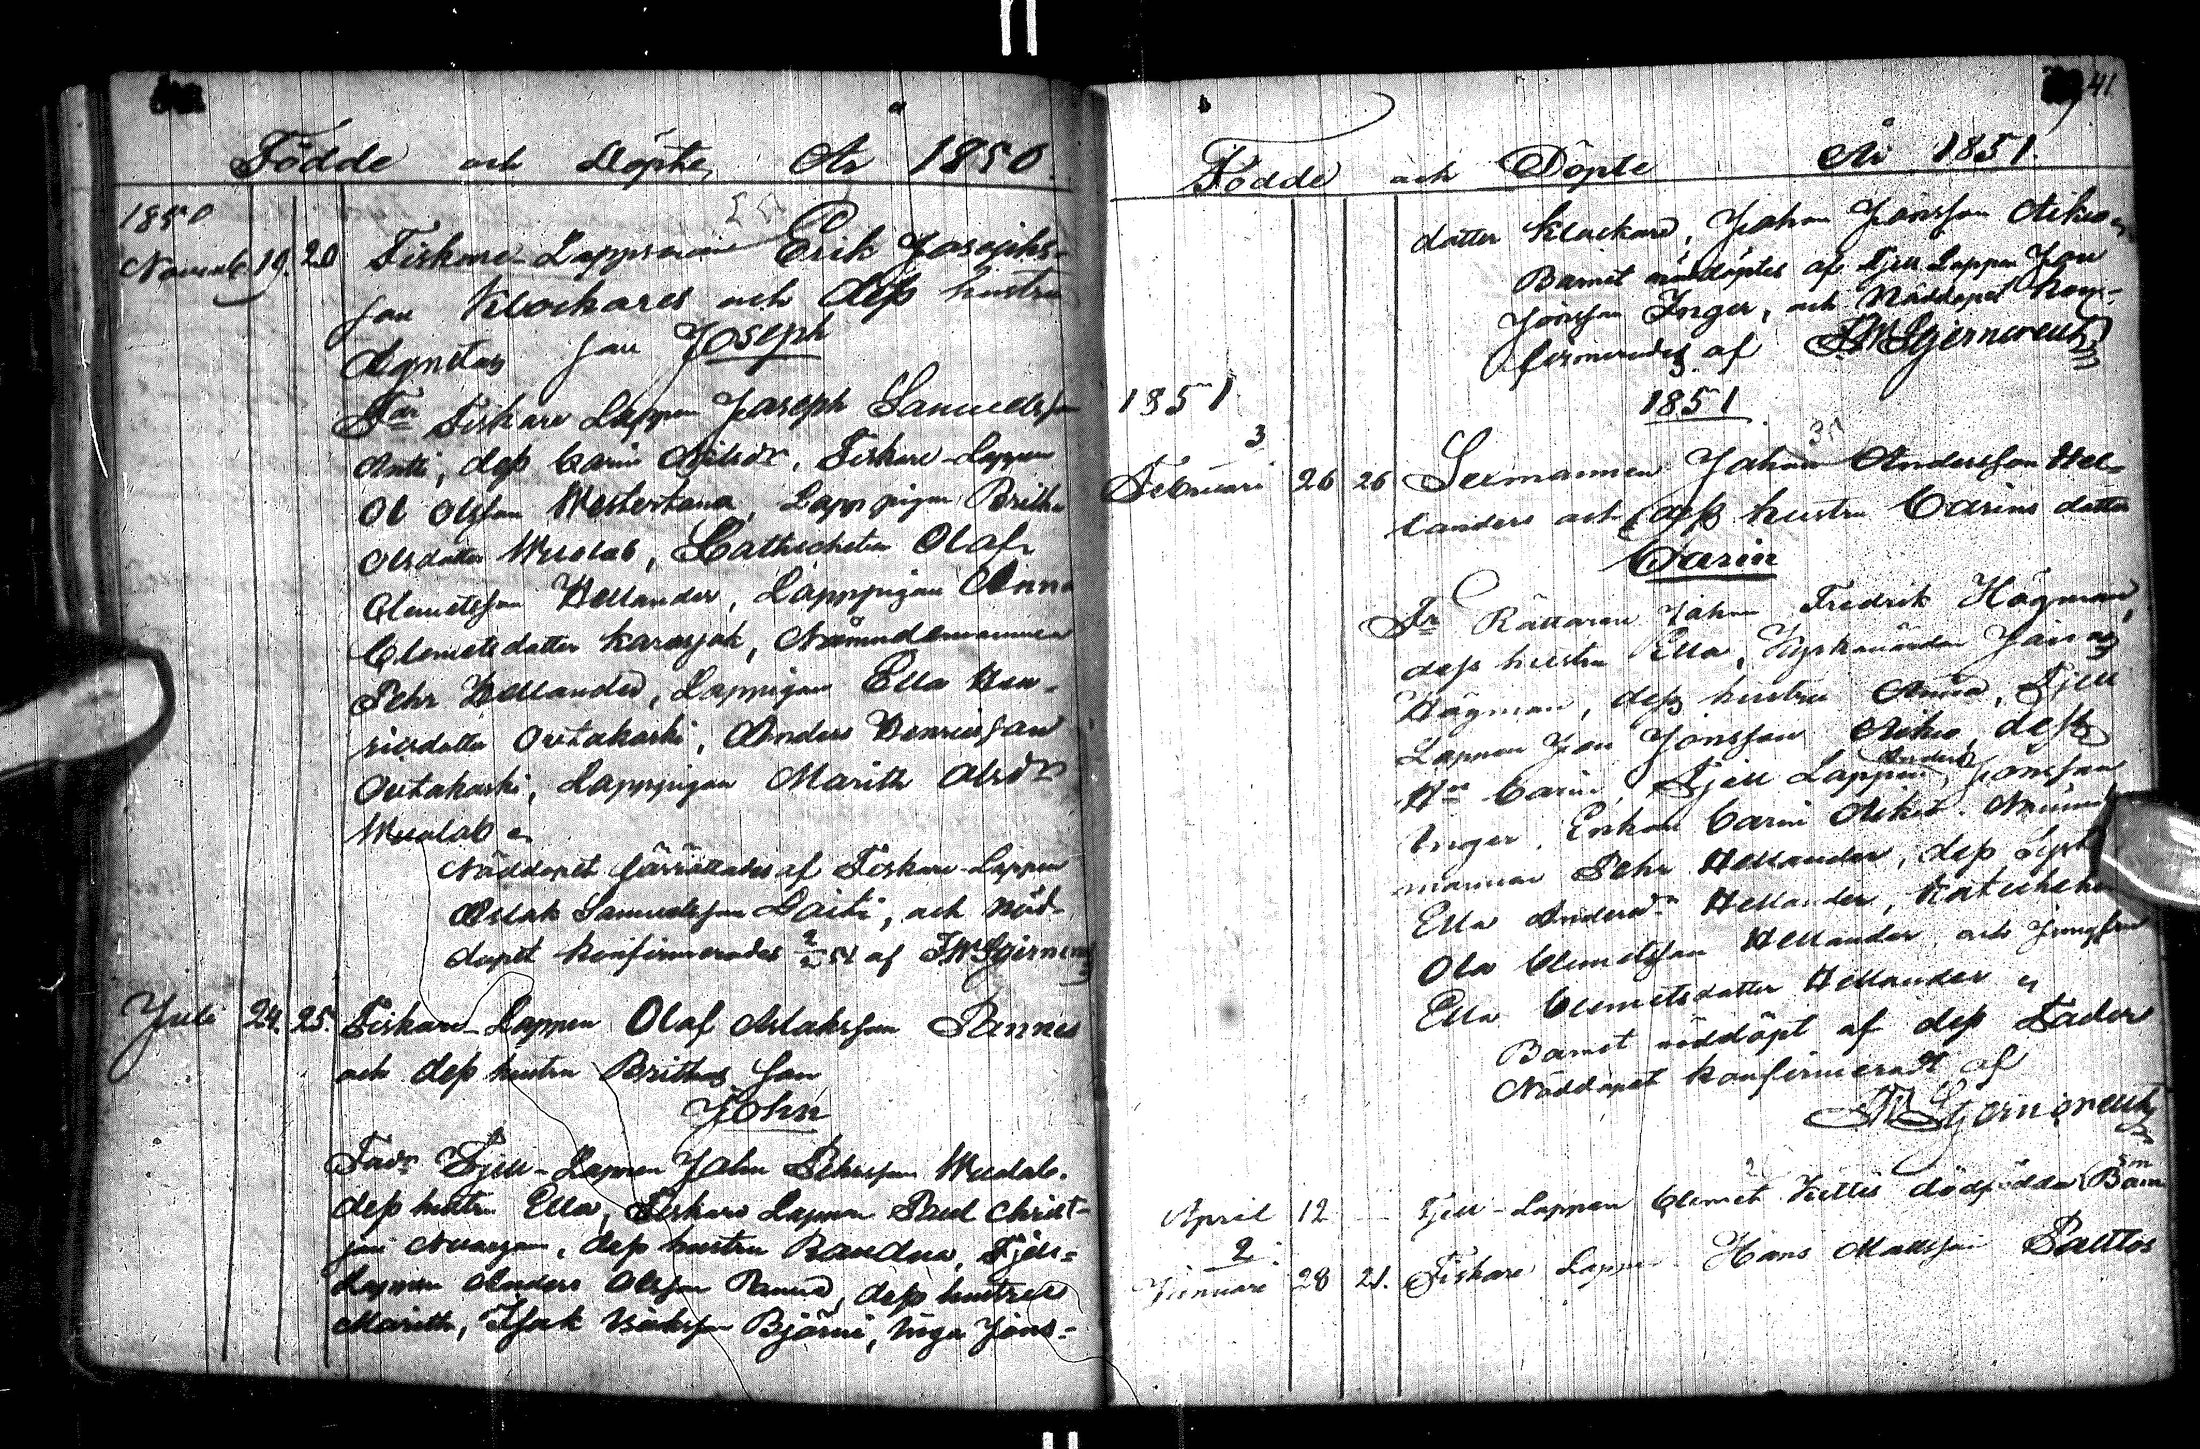 Födde och Döpte År 1850.
1850
Novemb. 19. 20 Fiskare-Lappman Erik Josephs-
son Klockares och dess hustru
Agnetas son Joseph
Fdr Fiskare Lappen Joseph Samuelsson
dess Carin Nilsdr, Fiskare-Lappen
Ol Olsson Westertana, Lapppigan Britha
Olsdotter Wuolab, Catheceten Olaf
Clemetsson Hellander, Lapppigan Anna
Clemetsdotter Karasjok, Nämndemannen
Pehr Hellander, Lappigan Ella Hen-
ricsdotter Outakoski, Anders Henricsson
Outakoski, Lapppigan Marith Olsdr
Wuolab
Nöddopet förrättades af Fiskare-Lappen
Aslak Samuelsson Laiti, och Nöd-
dopet konfirmerades 2/2 51 af
Juli 24. 25. Fiskare-Lappen Olaf Aslaksson Pannes
och dess hustru Brithas son
John
Fadr Fjell-Lappen John Pehrsson Wuolab.
dess hustru Ella, Fiskare Lappen Paul Christ-
dess hustru Raudna, Fjell-
Lappen Anders Olsson dess hustru
Marith, Isak Isaksson Björni, Inga Jons-
41
Födde och Döpte År 1851.
dotter Klockare, Johan Jonsson Aikio
Barnet nöddöptes af Fjell Lappen Jon
Jonsson Inger, och Nöddopet kon-
firmerades af
1851
1851
3
Februari 26 26 Sexmannen Johan Andersson Hel-
landers och dess hustru Carins dotter
Carin
Fr Rättaren Johan Fredrik Högman,
dess hustru Ella, Kyrkovärden Jonas
Högman, dess hustru Anna, Fjell
Lappen Jon Jonsson Aikio, dess
Hu Carin, Fjell Lappen Anders Jonsson
Inger, Enkan Carin Aikio. Nämnde-
mannen Pehr Hellander, dess
Ella Andersdr Hellander, Katecheten
Ola Clemetsson Hellander och Jungfru
Ella Clemetsdotter Hellander
Barnet nöddöpt af dess Fader
Nöddopet konfirmeradt af
April 12 Fjell-Lappen Clemet Kittis dödfödda Barn
2
Januari 28 21. Fiskare Lappen Hans Mattsson Pauttos